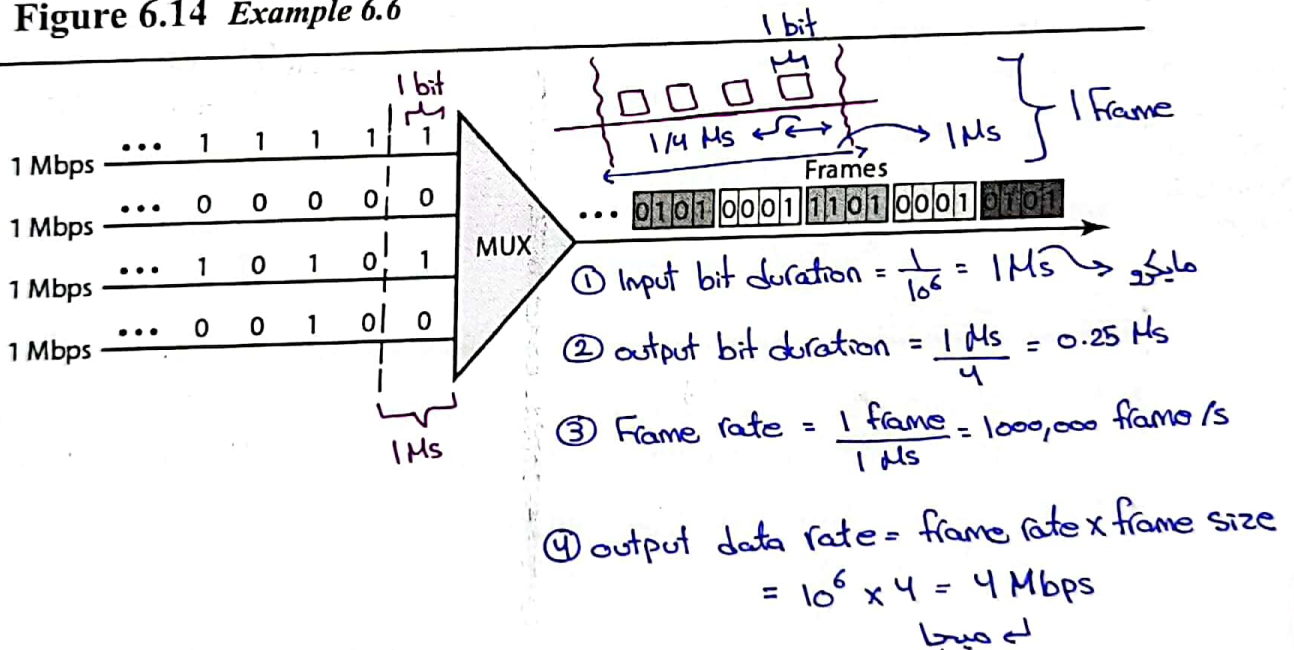 Figure 6.14 Example 6.6
1 bit
1/4 Ms
1 Ms
1 Frame
1 bit
1 Mbps ••• 1 1 1 1 1
1 Mbps ••• 0 0 0 0 0
1 Mbps ••• 1 0 1 0 1
1 Mbps ••• 0 0 1 0 0
1 Ms
MUX
Frames
••• 0101 0001 1101 0001 0101
① Input bit duration = 1/10⁶ = 1 Ms → مايكرو
② output bit duration = 1 Ms/4 = 0.25 Ms
③ Frame rate = 1 frame/1 Ms = 1000,000 frame/s
④ output data rate = frame rate x frame size
= 10⁶ x 4 = 4 Mbps
ميجا